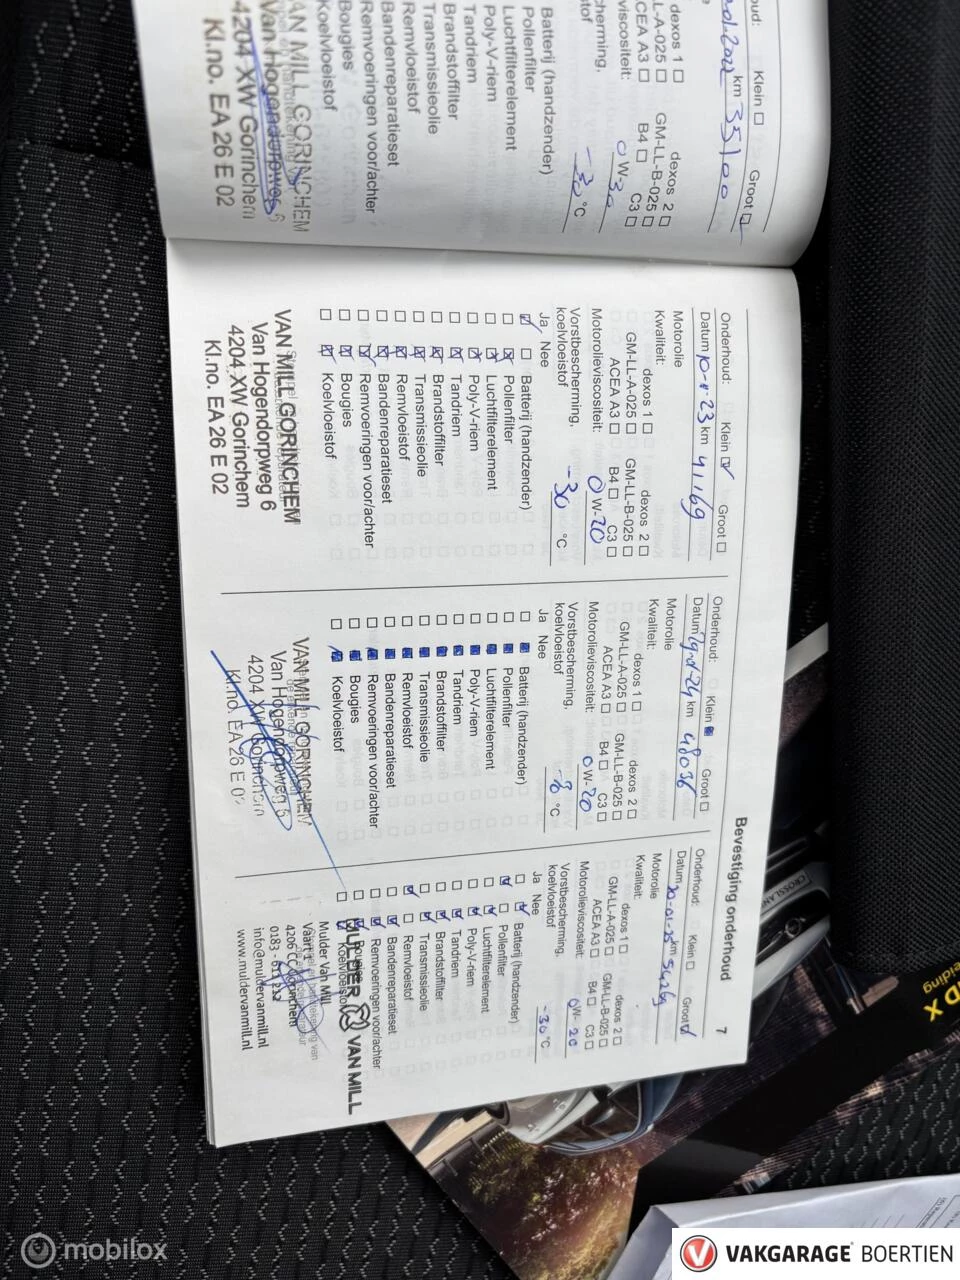 oud:
Klein ☐
Groot ☑
km 35100
dexos 1 ☐
dexos 2 ☐
L-A-025 ☐
GM-LL-B-025 ☐
CEA A3 ☐
B4 ☐
C3 ☐
viscositeit:
0 W-30
cherming,
stof
-30 °C
Batterij (handzender)
Pollenfilter
Luchtfilterelement
Poly-V-riem
Tandriem
Brandstoffilter
Transmissieolie
Remvloeistof
Bandenreparatieset
Remvoeringen voor/achter
Bougies
Koelvloeistof
VAN MILL GORINCHEM
Van Hogendorpweg 6
4204 XW Gorinchem
Kl.no. EA 26 E 02
Bevestiging onderhoud
7
Onderhoud: Klein ☑ Groot ☐
Datum 10-1-23 km 41169
Motorolie
Kwaliteit:
dexos 1 ☐ dexos 2 ☐
GM-LL-A-025 ☐ GM-LL-B-025 ☐
ACEA A3 ☐ B4 ☐ C3 ☐
Motorolieviscositeit: 0 W-20
Vorstbescherming,
koelvloeistof -30 °C
Ja Nee
☑ ☐ Batterij (handzender)
☐ ☑ Pollenfilter
☐ ☑ Luchtfilterelement
☐ ☑ Poly-V-riem
☐ ☑ Tandriem
☐ ☑ Brandstoffilter
☐ ☑ Transmissieolie
☐ ☑ Remvloeistof
☐ ☑ Bandenreparatieset
☐ ☑ Remvoeringen voor/achter
☐ ☑ Bougies
☐ ☑ Koelvloeistof
VAN MILL GORINCHEM
Van Hogendorpweg 6
4204 XW Gorinchem
Kl.no. EA 26 E 02
Onderhoud: Klein ■ Groot ☐
Datum km 48036
Motorolie
Kwaliteit:
dexos 1 ☐ dexos 2 ☐
GM-LL-A-025 ☐ GM-LL-B-025 ☐
ACEA A3 ☐ B4 ☐ C3 ☐
Motorolieviscositeit: 0 W-20
Vorstbescherming,
koelvloeistof °C
Ja Nee
☐ ■ Batterij (handzender)
☐ ■ Pollenfilter
☐ ■ Luchtfilterelement
☐ ■ Poly-V-riem
☐ ■ Tandriem
☐ ■ Brandstoffilter
☐ ■ Transmissieolie
☐ ■ Remvloeistof
☐ ■ Bandenreparatieset
☐ ■ Remvoeringen voor/achter
☐ ■ Bougies
☐ ■ Koelvloeistof
VAN MILL GORINCHEM
Van Hogendorpweg 6
4204 XW Gorinchem
Kl.no. EA 26 E 02
Onderhoud: Klein ☐ Groot ☑
Datum km
Motorolie
Kwaliteit:
dexos 1 ☐ dexos 2 ☐
GM-LL-A-025 ☐ GM-LL-B-025 ☐
ACEA A3 ☐ B4 ☐ C3 ☐
Motorolieviscositeit: 0W-20
Vorstbescherming,
koelvloeistof -30 °C
Ja Nee
☐ ☑ Batterij (handzender)
☑ ☐ Pollenfilter
☐ ☑ Luchtfilterelement
☐ ☑ Poly-V-riem
☐ ☑ Tandriem
☐ ☑ Brandstoffilter
☐ ☑ Transmissieolie
☑ ☐ Remvloeistof
☐ ☑ Bandenreparatieset
☐ ☑ Remvoeringen voor/achter
☐ ☑ Bougies
☐ ☑ Koelvloeistof
MULDER VAN MILL
Mulder Van Mill
4206 CC Gorinchem
info@muldervanmill.nl
www.muldervanmill.nl
CROSSLAND
D X
eiding
mobilox
VAKGARAGE BOERTIEN